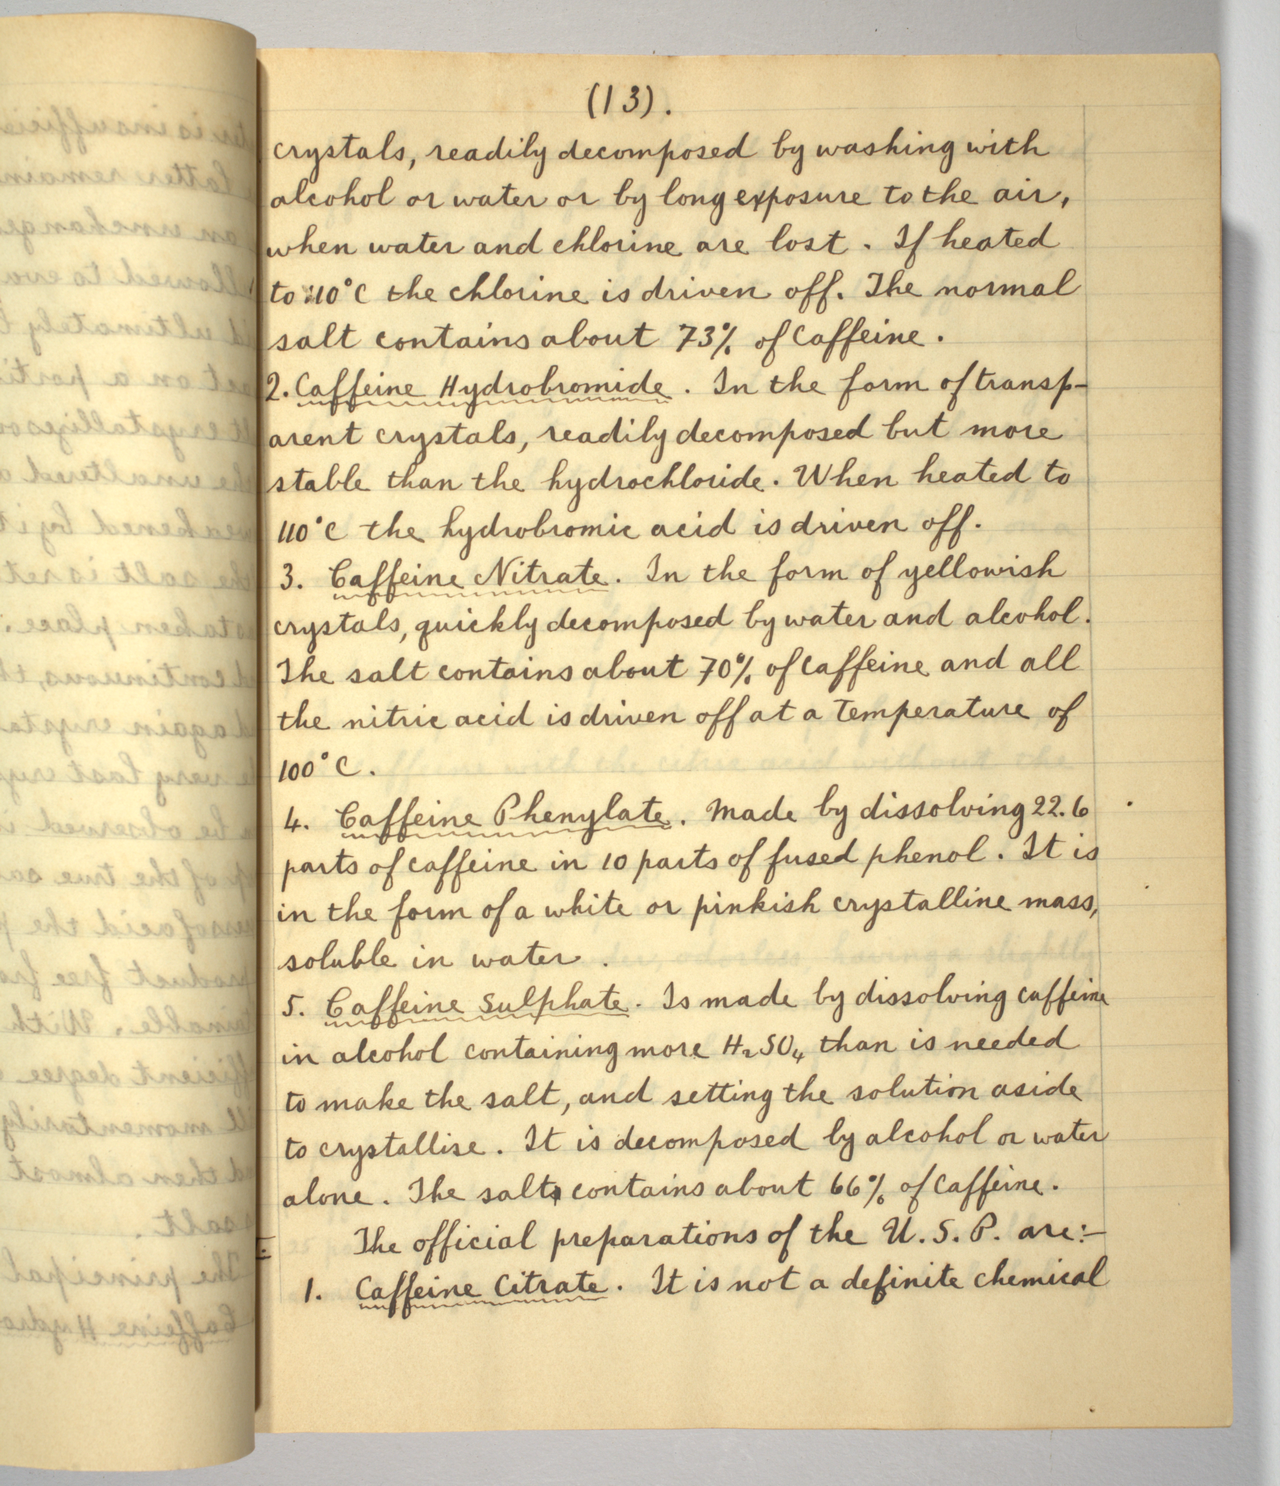 (13).
crystals, readily decomposed by washing with
alcohol or water or by long exposure to the air,
when water and chlorine are lost. If heated
to 110°C the chlorine is driven off. The normal
salt contains about 73% of Caffeine.
2. Caffeine Hydrobromide. In the form of transp-
arent crystals, readily decomposed but more
stable than the hydrochloride. When heated to
110°C the hydrobromic acid is driven off.
3. Caffeine Nitrate. In the form of yellowish
crystals, quickly decomposed by water and alcohol.
The salt contains about 70% of caffeine and all
the nitric acid is driven off at a temperature of
100°C.
4. Caffeine Phenylate. Made by dissolving 22.6
parts of caffeine in 10 parts of fused phenol. It is
in the form of a white or pinkish crystalline mass,
soluble in water.
5. Caffeine Sulphate. Is made by dissolving caffeine
in alcohol containing more H₂SO₄ than is needed
to make the salt, and setting the solution aside
to crystallise. It is decomposed by alcohol or water
alone. The salt contains about 66% of Caffeine.
The official preparations of the U.S.P. are:-
1. Caffeine Citrate. It is not a definite chemical